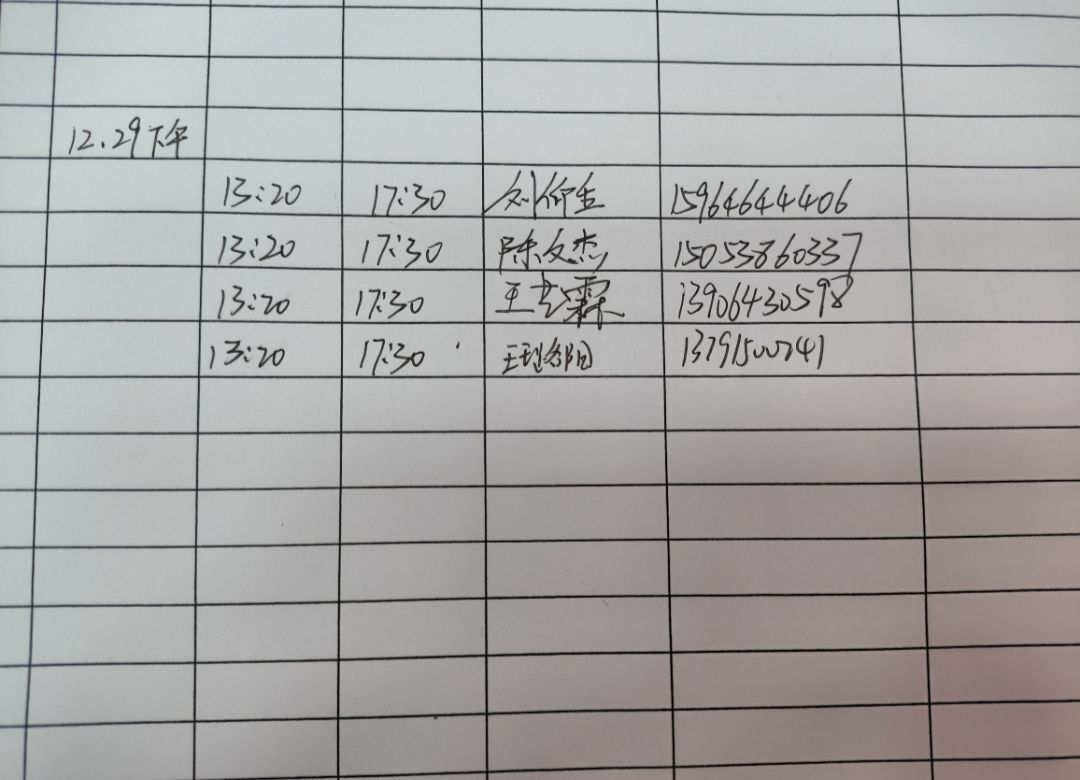 12.29下午
13:20 17:30 刘仰生 15964644406
13:20 17:30 陈文杰 15053860337
13:20 17:30 王志霖 13906430598
13:20 17:30 王 阳 13791500741